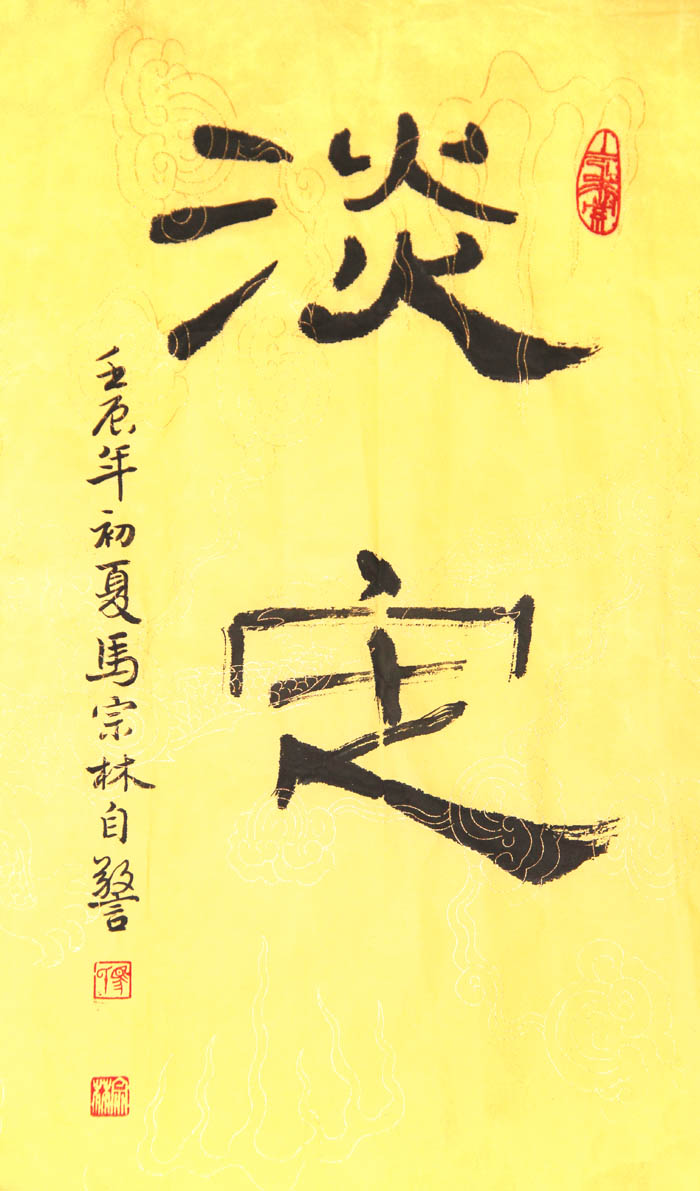 淡定
壬辰年初夏馬宗林自警